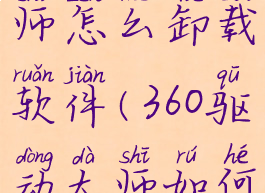 师怎么卸载
ruǎn jiàn qū
软件(360驱
dòng dà shī rú hé
动大师如何